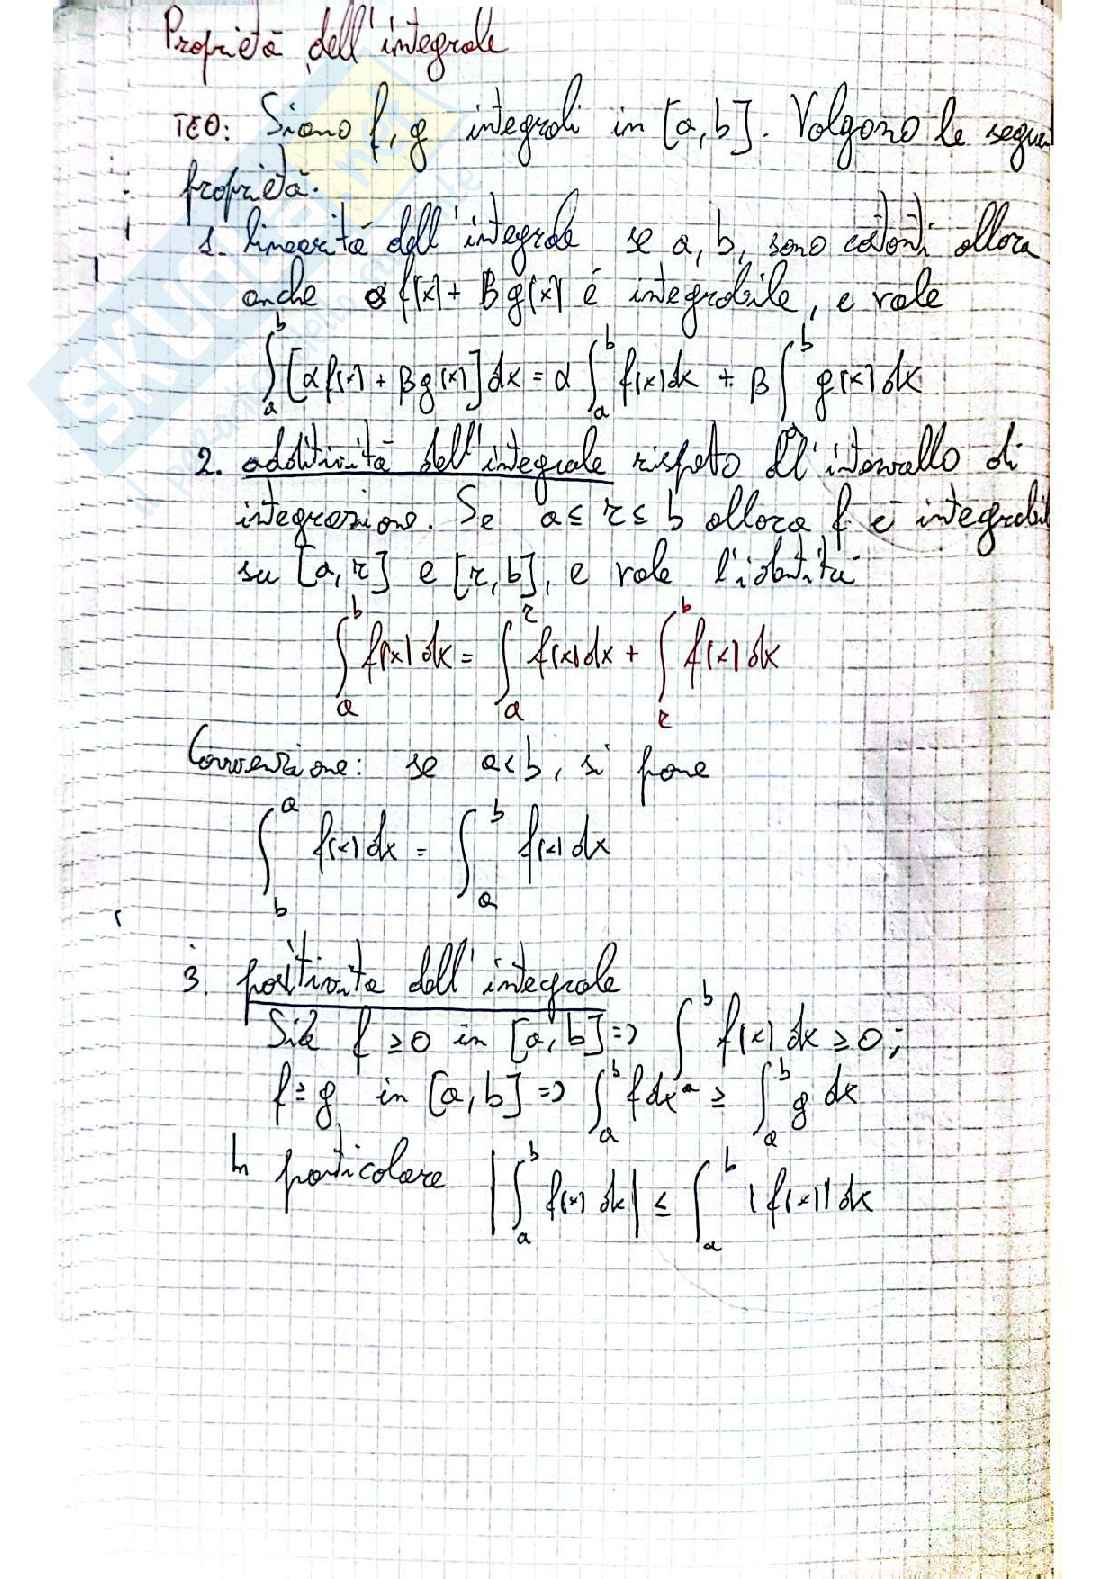 Proprietà dell'integrale
TEO: Siano f, g integrali in [a, b]. Valgono le segu
proprietà.
1. linearità dell'integrale se a, b, sono costanti allora
anche α f(x) + β g(x) é integrabile, e vale
∫_a^b [α f(x) + β g(x)] dx = α ∫_a^b f(x) dx + β ∫_a^b g(x) dx
2. additività dell'integrale rispetto all'intervallo di
integrazione. Se a ≤ r ≤ b allora f é integrabil
su [a, r] e [r, b], e vale l'identità
∫_a^b f(x) dx = ∫_a^r f(x) dx + ∫_r^b f(x) dx
Convenzione: se a < b, si pone
∫_b^a f(x) dx = ∫_a^b f(x) dx
3. positività dell'integrale
f ≥ 0 in [a, b] => ∫_a^b f(x) dx ≥ 0;
f ≥ g in [a, b] => ∫_a^b f dx ≥ ∫_a^b g dx
In particolare |∫_a^b f(x) dx| ≤ ∫_a^b |f(x)| dx
SKUOLA.net